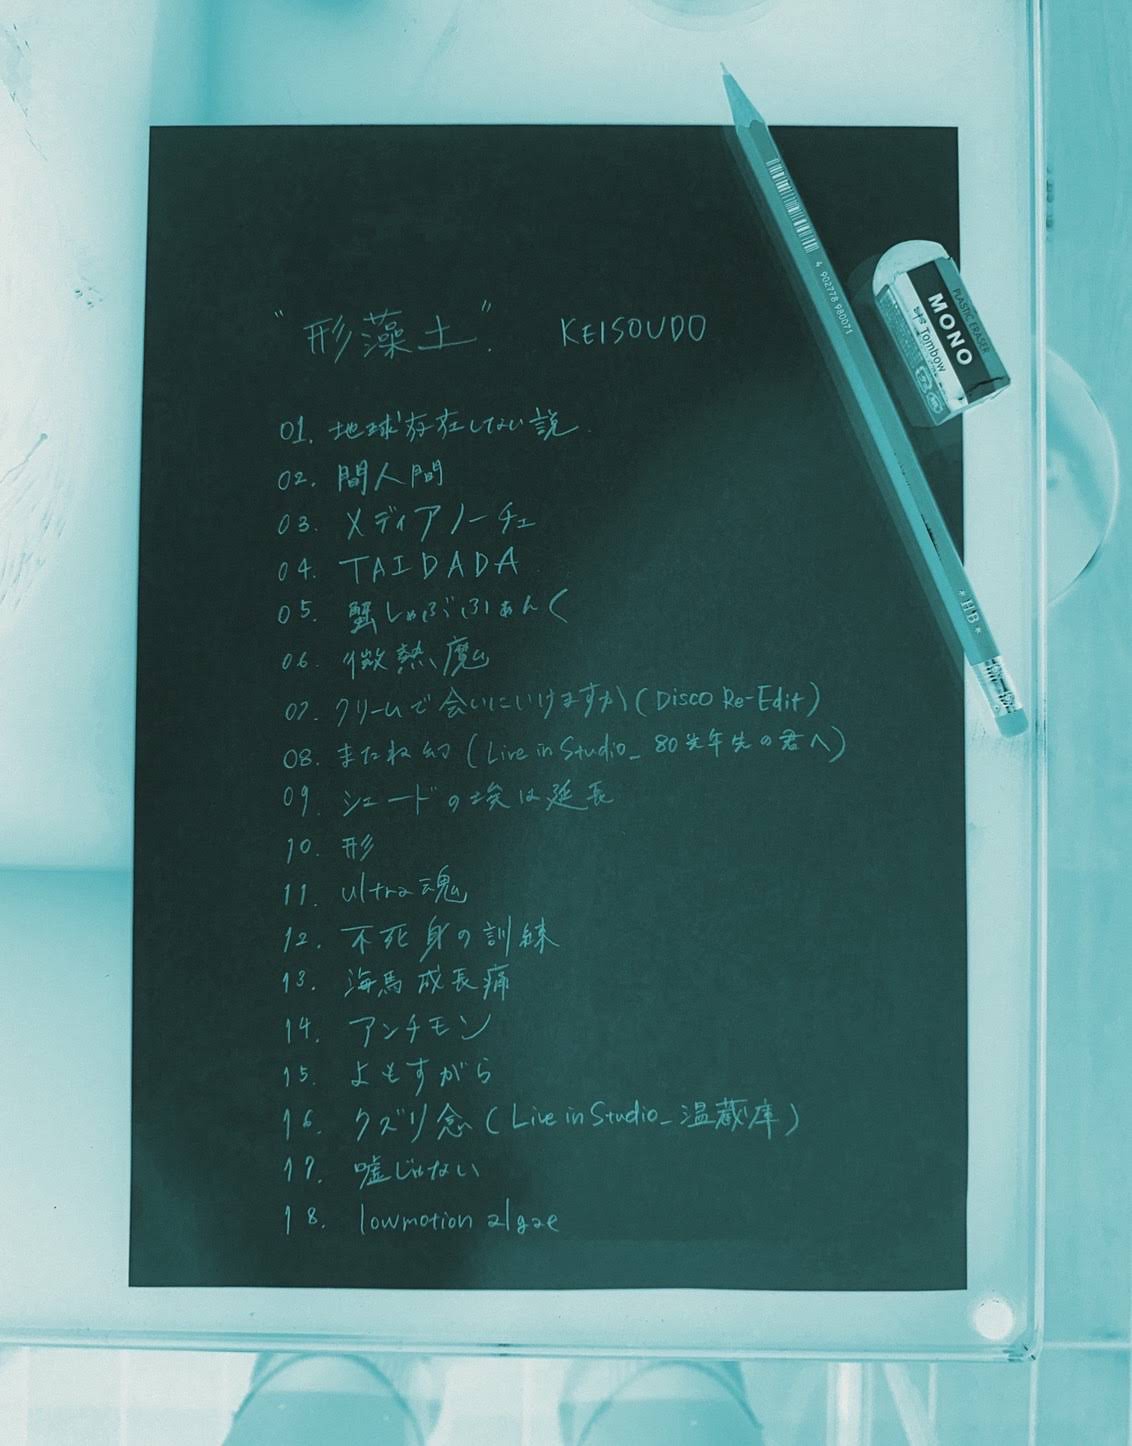 "形藻土". KEISOUDO
01. 地球存在しない説.
02. 間人間
03. メディアノーチェ
04. TAIDADA
05. 蟹しゃぶふぁんく
06. 微熱魔
07. クリームで会いにいけますか (Disco Re-Edit)
08. またね幻 (Live in Studio_ 80光年先の君へ)
09. シェードの埃は延長
10. 形
11. ultra魂
12. 不死身の訓練
13. 海馬成長痛
14. アンチモン
15. よもすがら
16. クズリ念 (Live in Studio_ 温蔵庫)
17. 嘘じゃない
18. lowmotion algae
4 902778 980071
*HB*
PLASTIC ERASER
MONO
Tombow